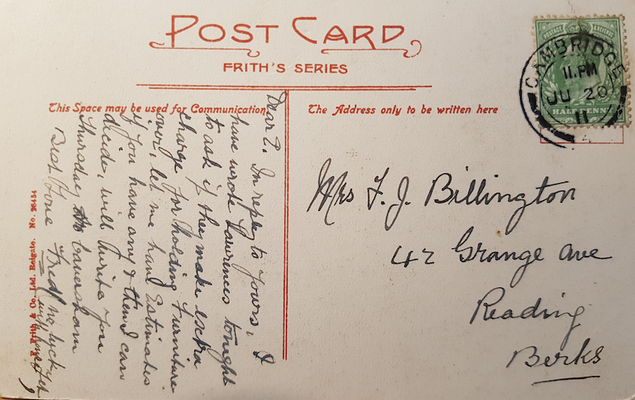 POST CARD
FRITH'S SERIES
This Space may be used for Communication
The Address only to be written here
CAMBRIDGE
11.PM
JU 20
11
HALFPENNY
Dear E. In reply to yours, I
have wrote Lawrences tonight
to ask if they make extra
charge for holding furniture
over, let me have Estimates
if you have any & then I can
decide, will write you
Thursday, to Caversham
Best Love Fred
no luck
Mrs F. J. Billington
42 Grange Ave
Reading
Berks
F. Frith & Co. Ltd. Reigate. No. 26454